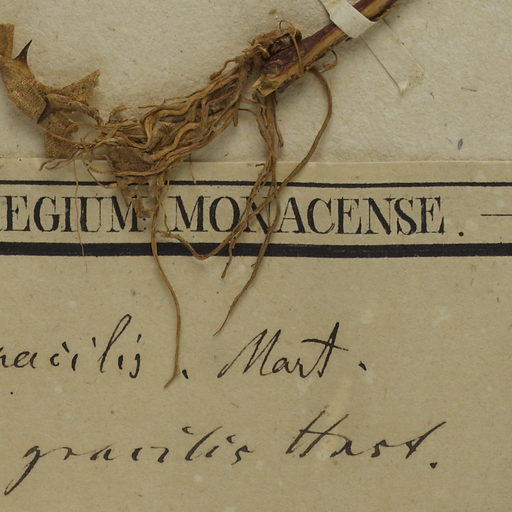 EGIUM MONACENSE.
racilis. Mart.
gracilis Hrst.